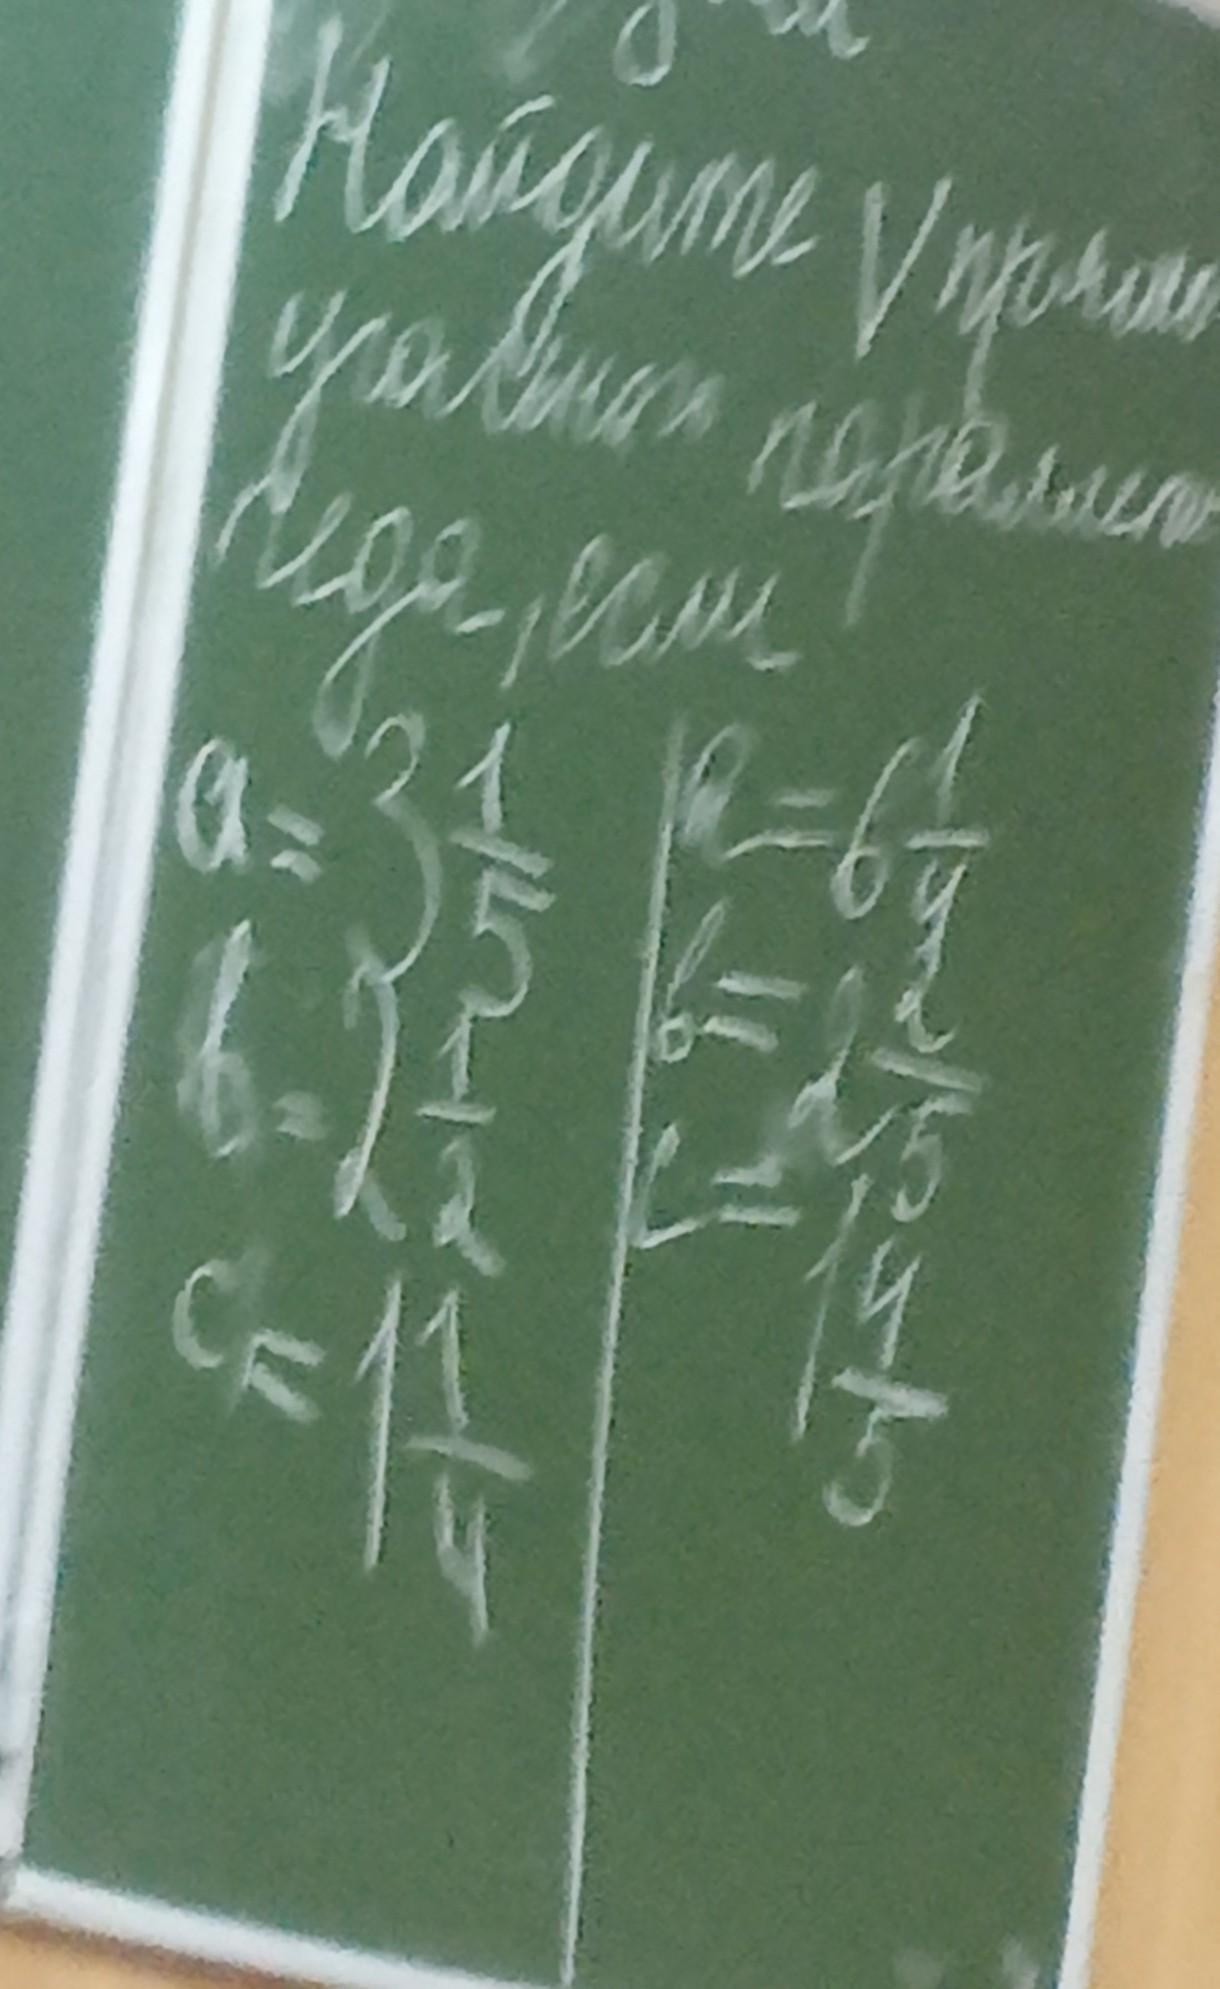 Найдите V прямо
угольного паралле
педа, если
a = 3 1/5
b = 2 1/2
c = 1 1/4
a = 6 1/4
b = 2 2/5
c = 1 4/5